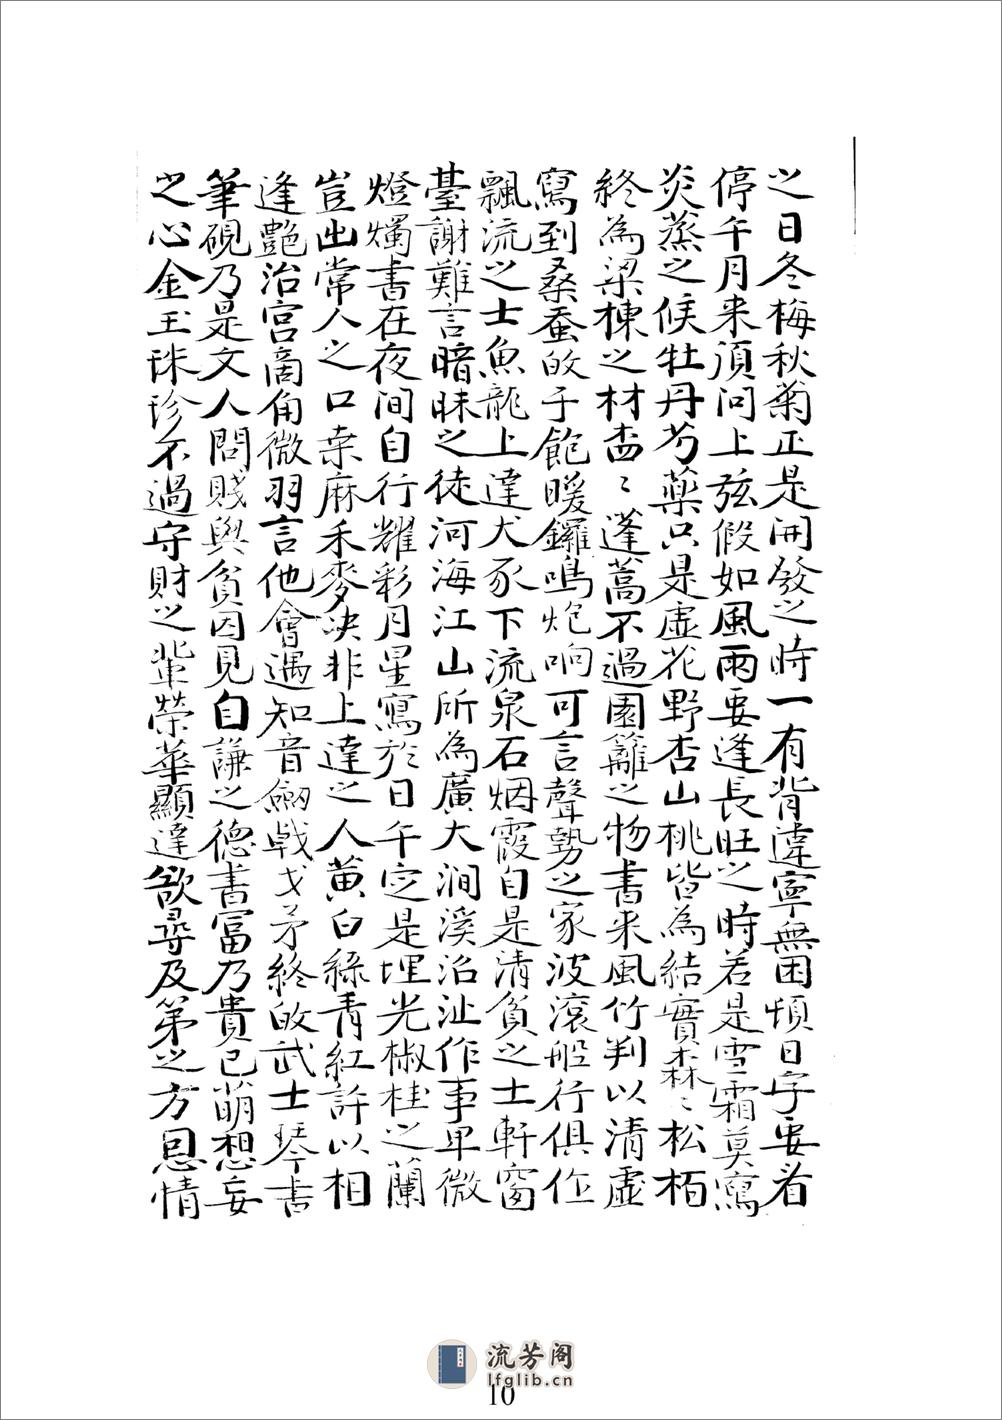 之日冬梅秋菊正是開發之時一有背違寧無困頓日字要看
停午月来須问上弦假如風雨要逢長旺之時若是雪霜莫寫
炎蒸之候牡丹芍藥只是虛花野杏山桃皆為結實森〻松栢
終為梁棟之材〻蓬蒿不過園籬之物書来風竹判以清虛
寫到桑蚕的于飽暖鑼鳴炮响可言聲勢之家波滾船行俱作
飄流之士魚龍上達犬豕下流泉石烟霞自是清貧之士軒窗
臺謝難言暗昧之徒河海江山所為廣大澗溪沼沚作事卑微
燈燭書在夜间自行耀彩月星寫於日午定是埋光椒桂之蘭
豈出常人之口桒麻禾麥决非上達之人黄白綠青紅許以相
逢艷治宫商角微羽言他會遇知音劒戟戈矛終的武士琴書
筆硯乃是文人問賤與貧因見自謙之德書冨乃貴已萌想妄
之心金玉珠珍不過守財之輩榮華顯達欲尋及第之方恩情
流芳阁
lfglib.cn
10